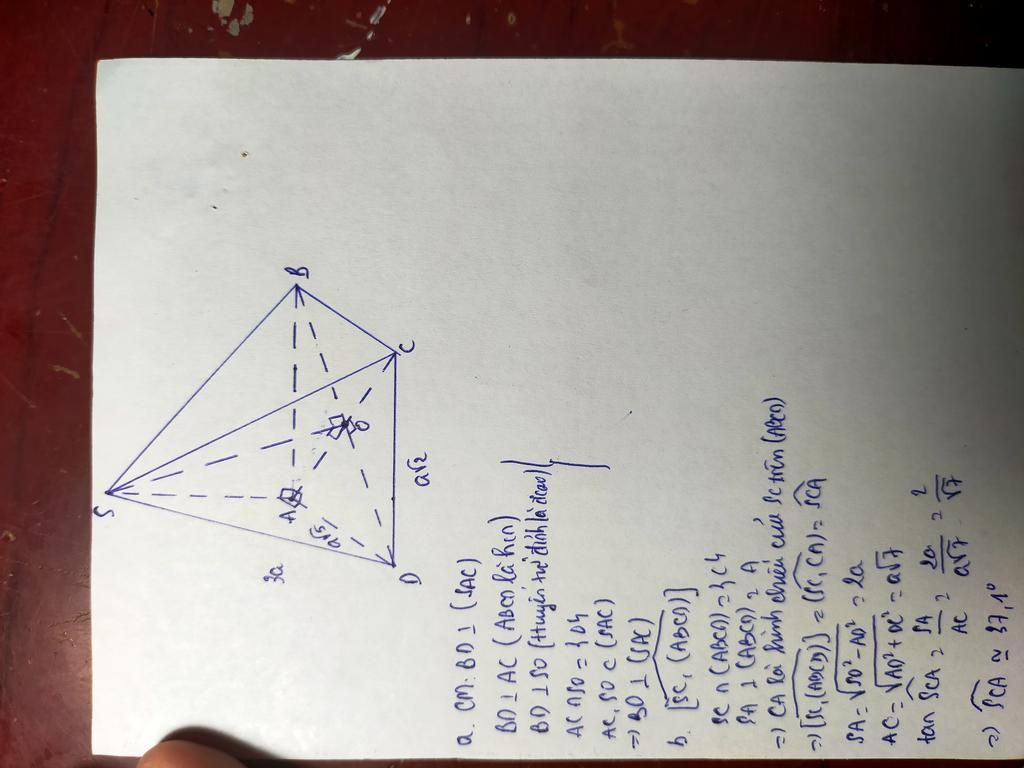 S
3a
A
a√5
B
O
D
C
a√2
a. CM: BD ⊥ (SAC)
BD ⊥ AC (ABCD là hcn)
BD ⊥ SO
AC ∩ SO = {O}
AC, SO ⊂ (SAC)
=) BD ⊥ (SAC)
b. [SC, (ABCD)]
SC ∩ (ABCD) = {C}
SA ⊥ (ABCD) = A
=) CA là hình chiếu của SC trên (ABCD)
=) [SC, (ABCD)] = (SC, CA) = SCA
SA = √SD² - AD² = 2a
AC = √AD² + DC² = a√7
tan SCA = SA/AC = 2a/a√7 = 2/√7
=) SCA ≃ 37,1°